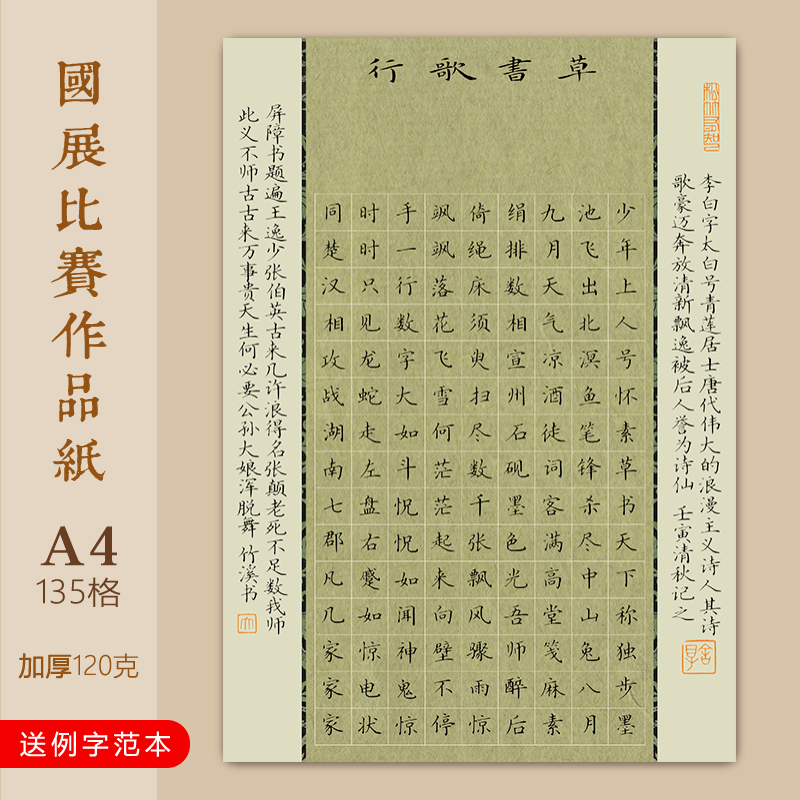 國展比賽作品紙
A4
135格
加厚120克
送例字范本
草書歌行
李白字太白号青莲居士唐代伟大的浪漫主义诗人其诗
歌豪迈奔放清新飘逸被后人誉为诗仙 壬寅清秋记之
少年上人号怀素草书天下称独步墨
池飞出北溟鱼笔锋杀尽中山兔八月
九月天气凉酒徒词客满高堂笺麻素
绢排数相宣州石砚墨色光吾师醉后
倚绳床须臾扫尽数千张飘风骤雨惊
飒飒落花飞雪何茫茫起来向壁不停
手一行数字大如斗怳怳如闻神鬼惊
时时只见龙蛇走左盘右蹙如惊电状
同楚汉相攻战湖南七郡凡几家家家
屏障书题遍王逸少张伯英古来几许浪得名张颠老死不足数我师
此义不师古古来万事贵天生何必要公孙大娘浑脱舞 竹溪书